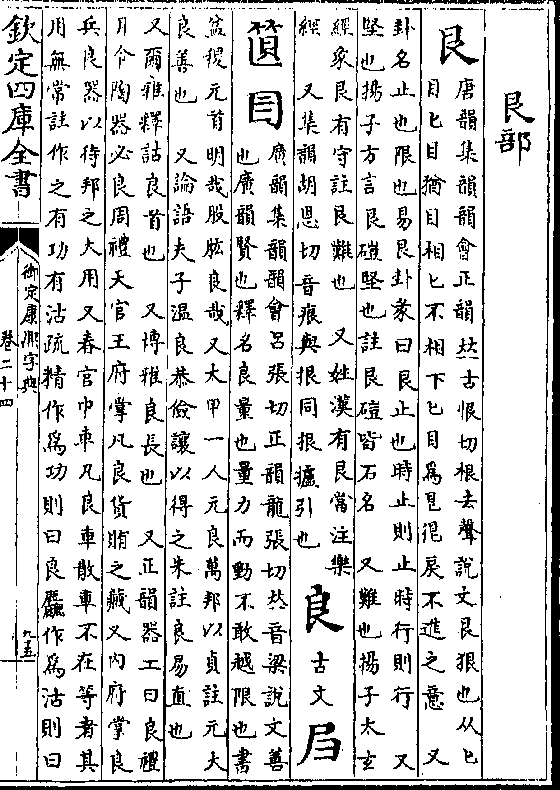 艮部
艮
唐韻集韻韻會正韻𠀤古恨切根去聲說文艮狠也从匕
目匕目猶目相匕不相下匕目爲艮很戾不進之意　又
卦名止也限也易艮卦彖曰艮止也時止則止時行則行　又
堅也揚子方言艮磑堅也註艮磑皆石名　又難也揚子太玄
經象艮有守註艮難也　又姓漢有艮當注樂
經　又集韻胡恩切音痕與拫同拫攎引也
良
古文
𡰨
筤目
廣韻集韻韻會呂張切正韻龍張切𠀤音梁說文善
也廣韻賢也釋名良量也量力而動不敢越限也書
益稷元首明哉股肱良哉又太甲一人元良萬邦以貞註元大
良善也　又論語夫子溫良恭儉讓以得之朱註良易直也
又爾雅釋詁良首也　又博雅良長也　又正韻器工曰良禮
月令陶器必良周禮天官王府掌凡良貨賄之藏又內府掌良
兵良器以待邦之大用又春官巾車凡良車散車不在等者其
用無常註作之有功有沽疏精作爲功則曰良麤作爲沽則曰
欽定四庫全書
御定康熙字典
卷二十四
九五